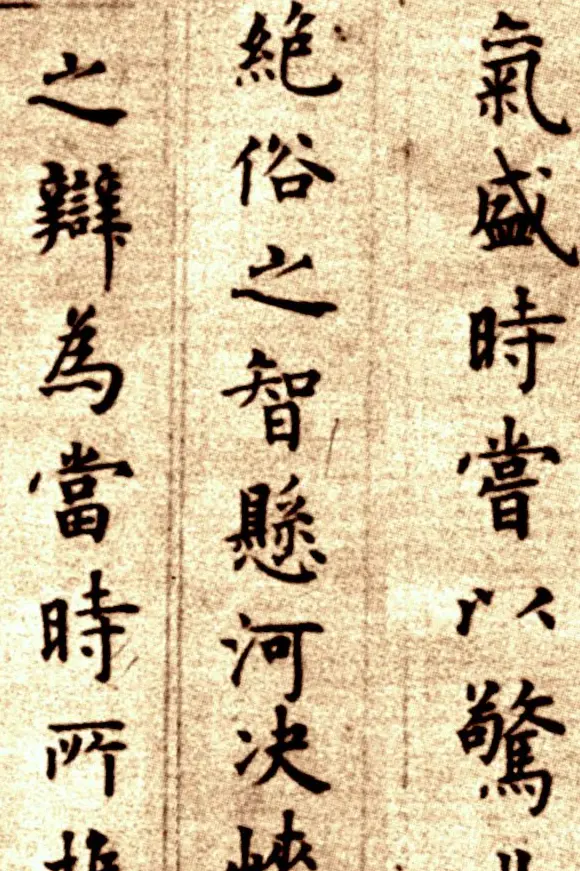 氣盛時嘗以驚
絕俗之智懸河决峽
之辯為當時所推